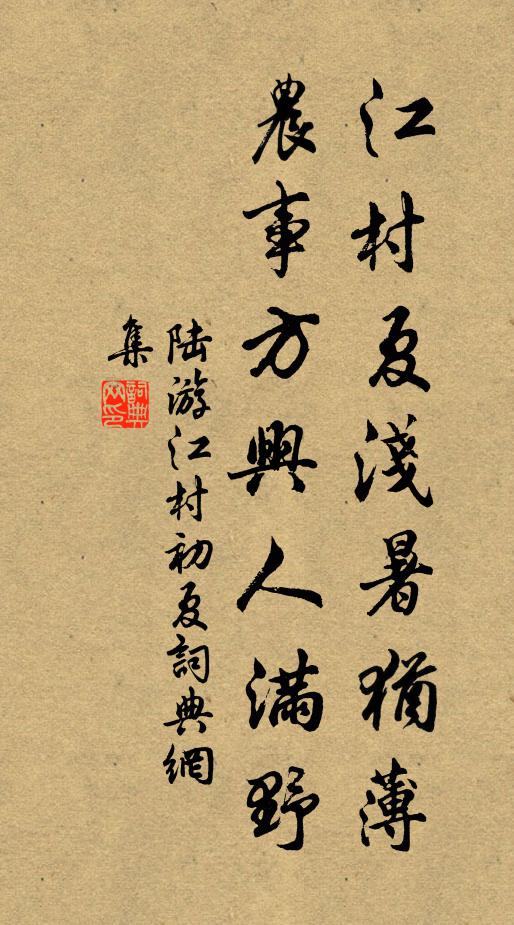 江村夏淺暑猶薄
農事方興人滿野
陆游江村初夏詞典網
集
詞典網印